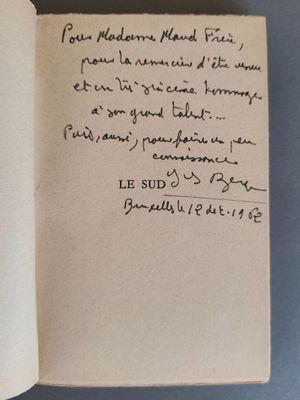 Pour Madame Maud Frère,
pour la remercier d'être venue
et en très sincère hommage
à son grand talent...
Puis, aussi, pour faire un peu
connaissance
LE SUD
Yves Berger
Bruxelles le 12 dec. 1962